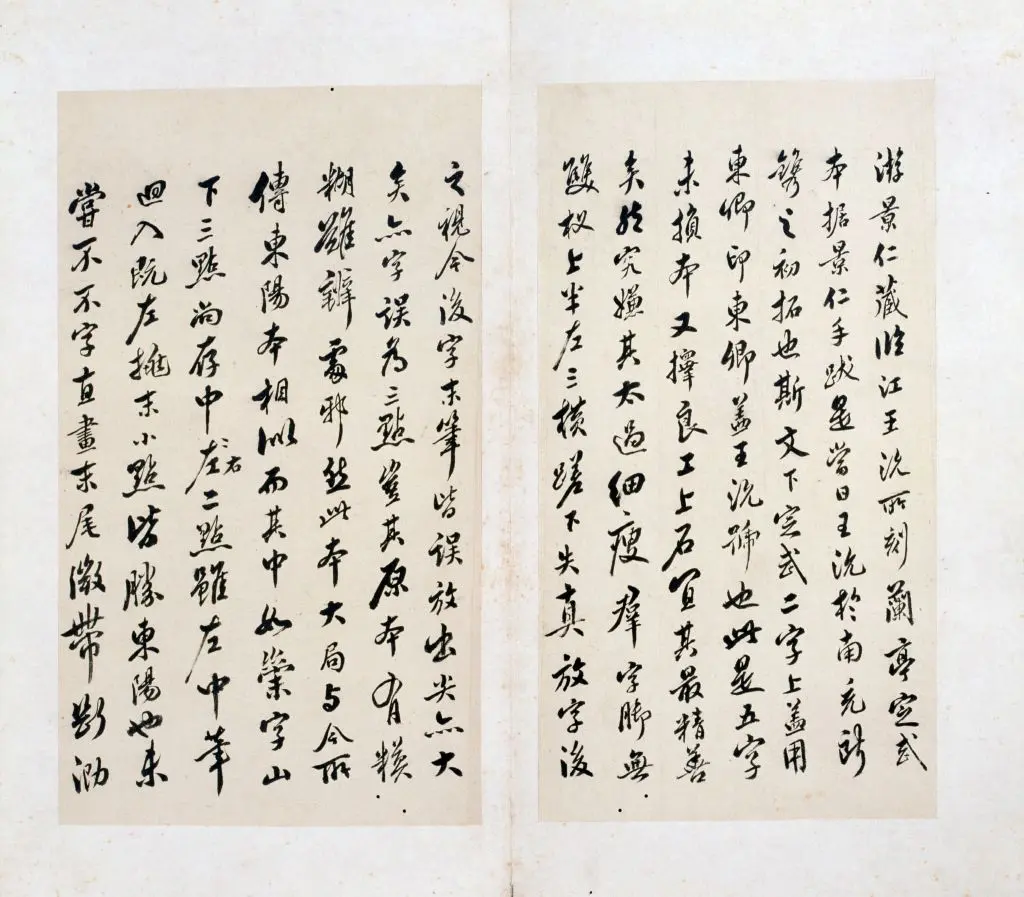 游景仁藏臨江王沇所刻蘭亭定武
本据景仁手跋是當日王沇於南充所
鐫之初拓也斯文下定武二字上盖用
東卿印東卿盖王沇號也此是五字
未損本又擇良工上石宜其最精善
矣然究嫌其太過細瘦羣字脚無
雙杈上半左三橫蹉下失真放字後
之視今後字末筆皆誤放出尖亦大
矣亦字誤为三點豈其原本有糢
糊難辨處邪然此本大局与今所
傳東陽本相似而其中如崇字山
下三點尚存中左右二點雖左中筆
迴入既左推末小點皆勝東陽也未
嘗不不字直畫末尾微帶斷泐